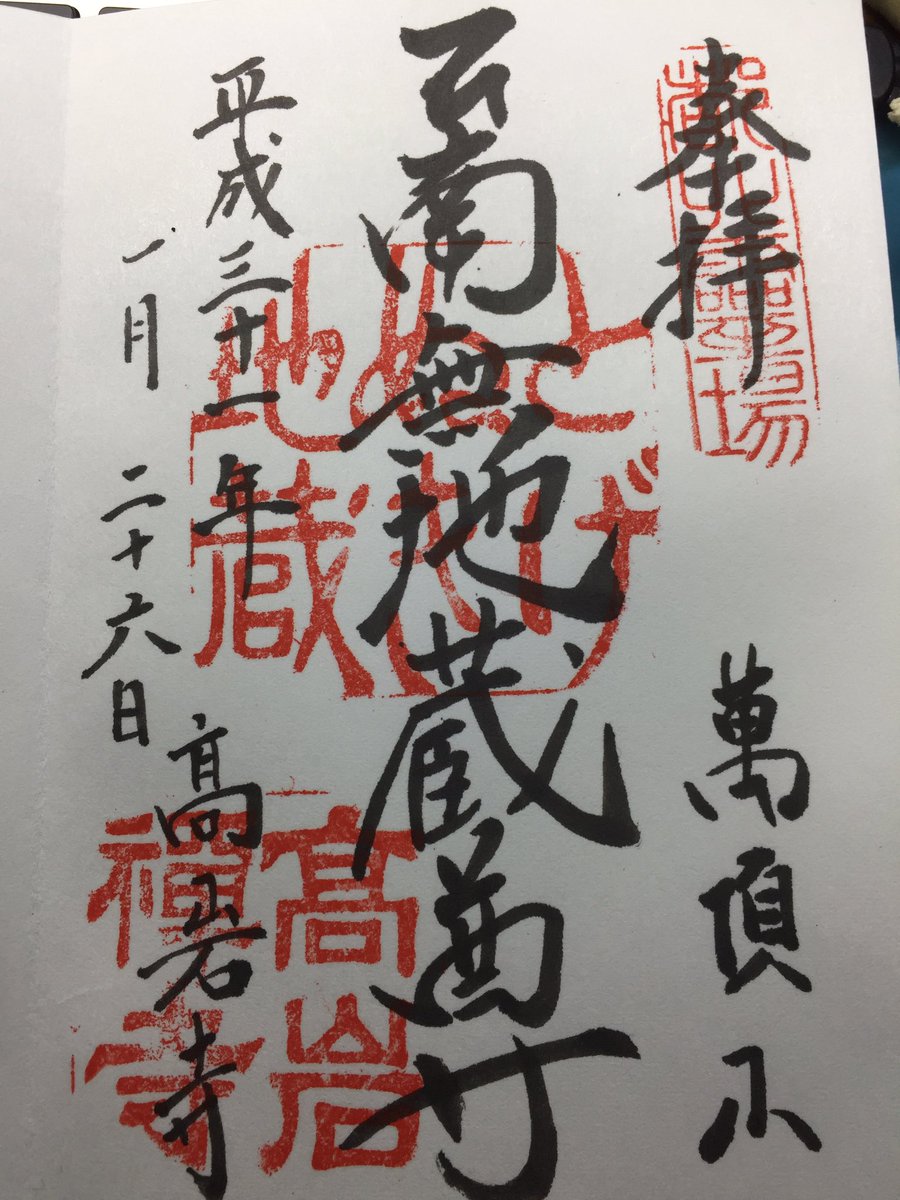 奉拝
萬頂山
南無地蔵尊
とげ
ぬき
地蔵
平成三十一年
一月二十六日
高岩寺
高岩
禪寺